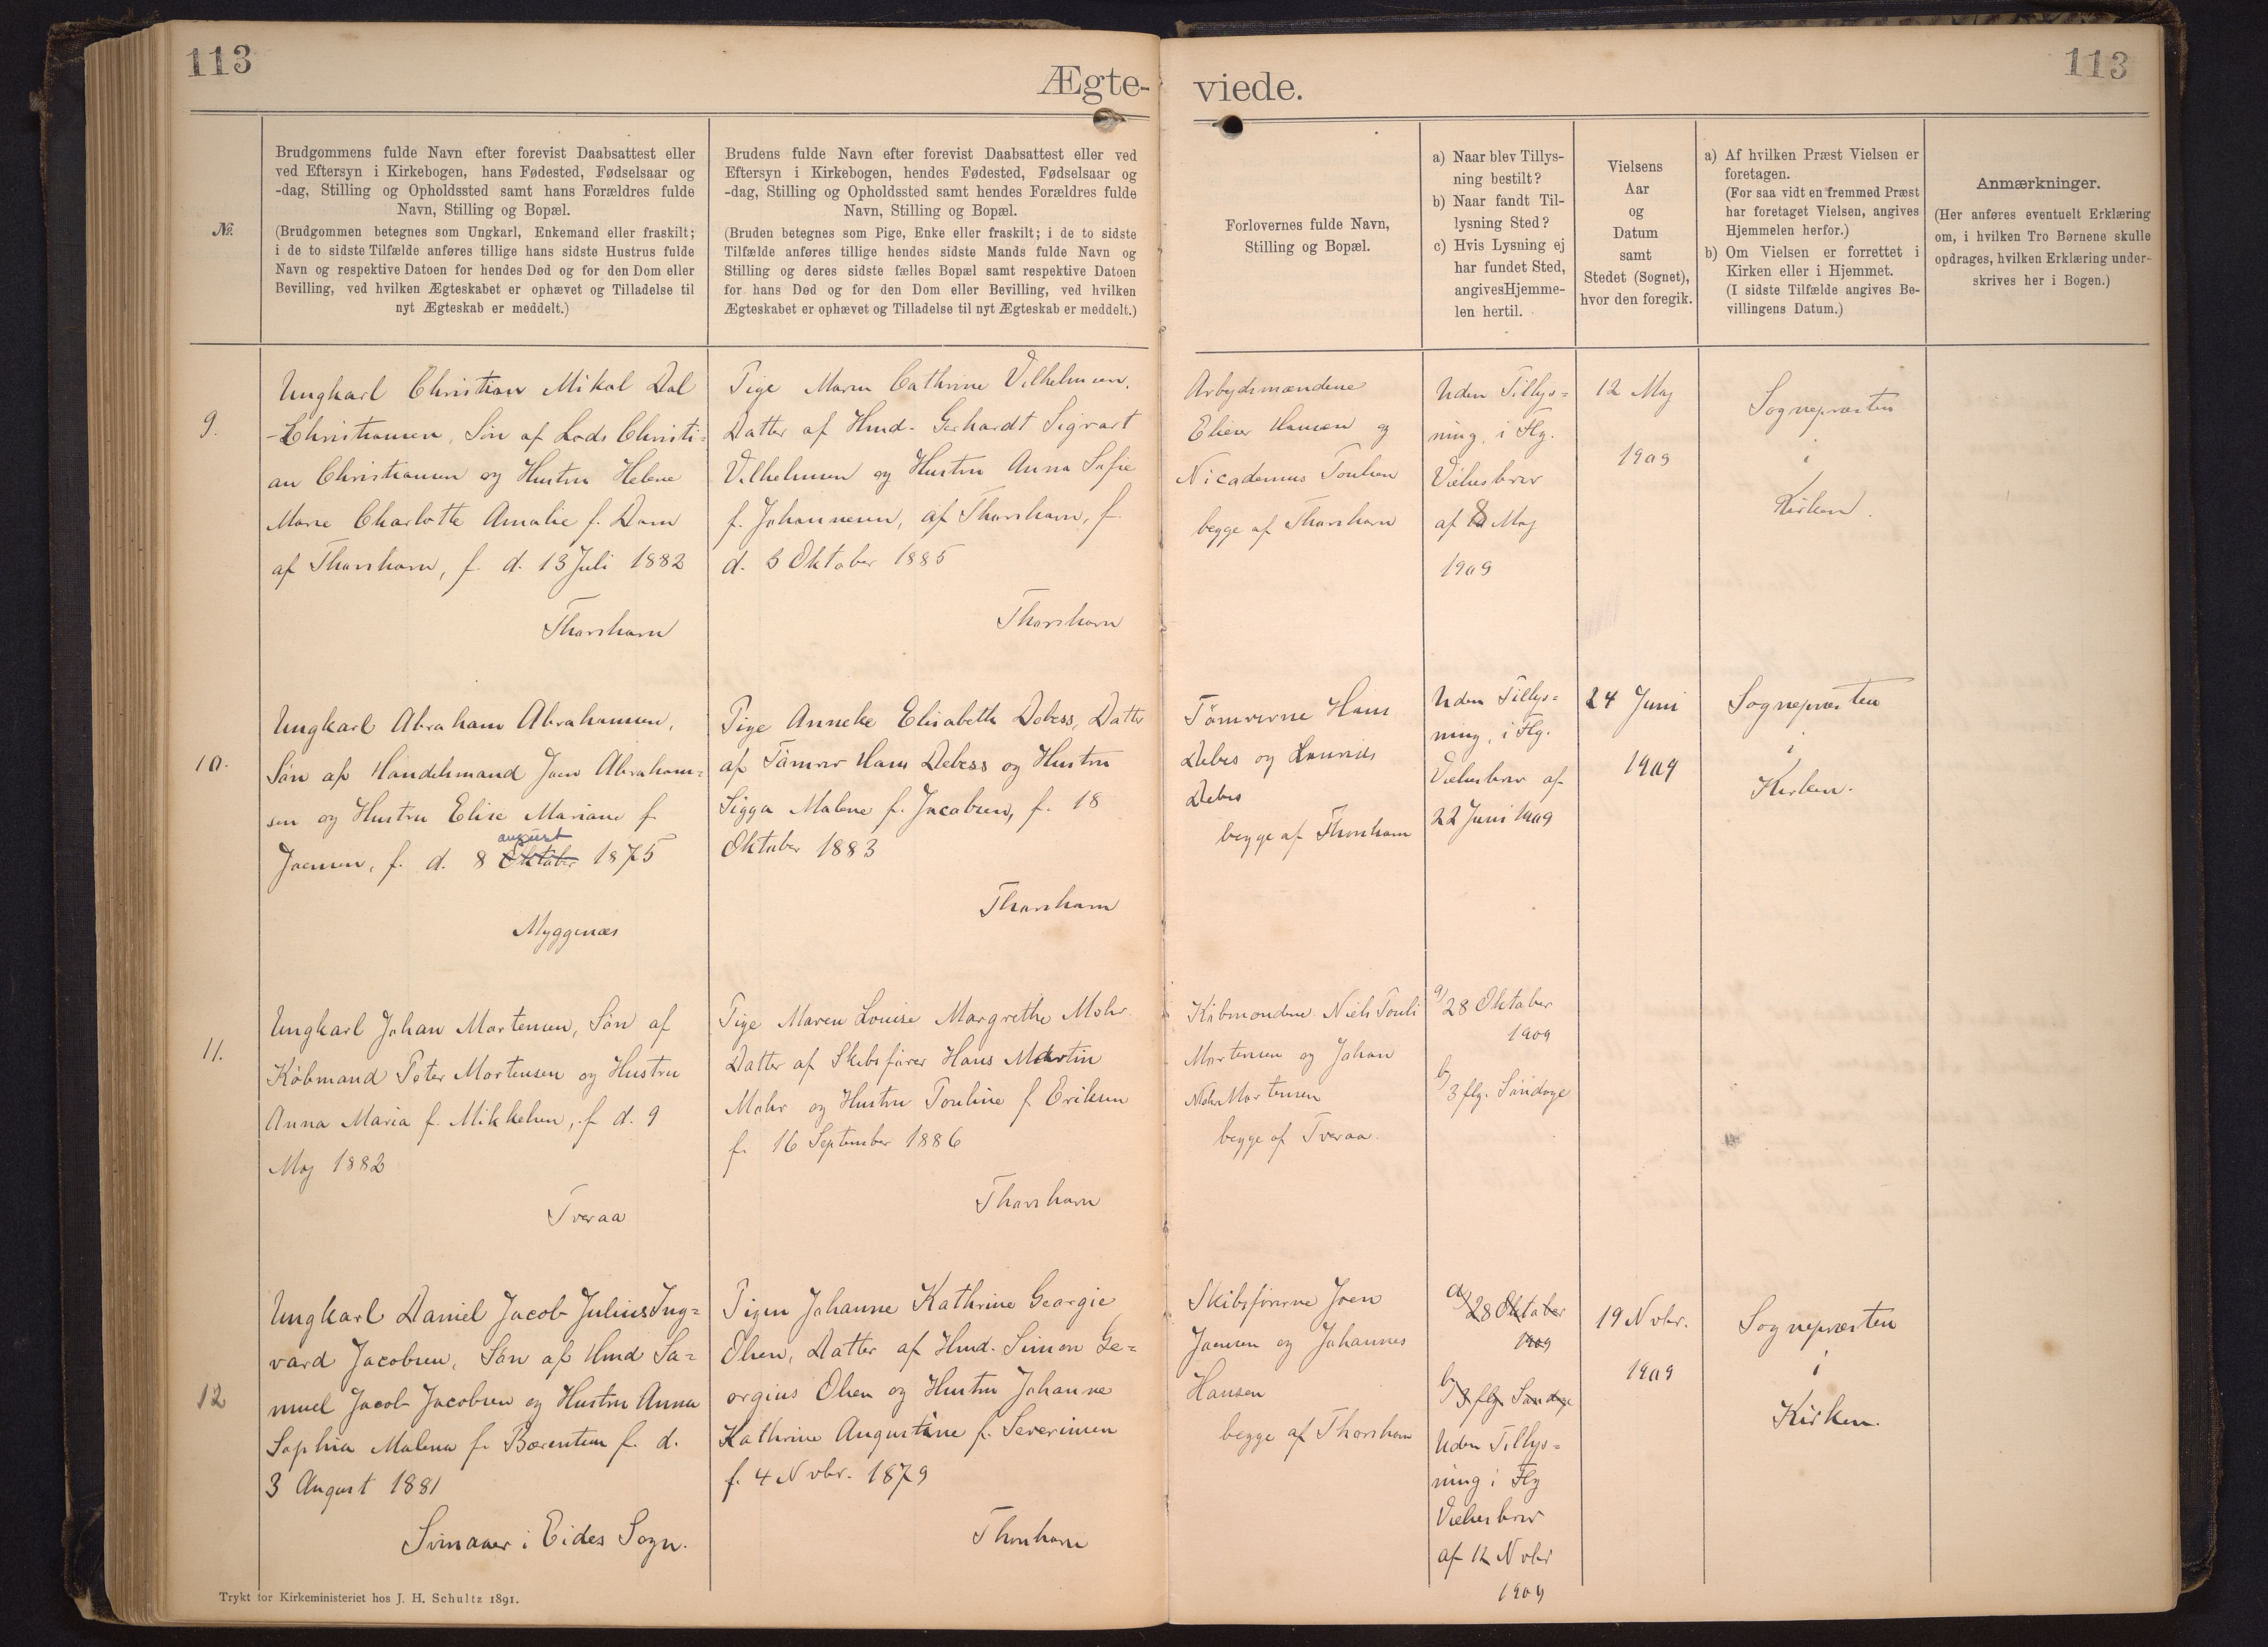 113
Ægte-
№.
Brudgommens fulde Navn efter forevist Daabsattest eller
ved Eftersyn i Kirkebogen, hans Fødested, Fødselsaar og
-dag, Stilling og Opholdssted samt hans Forældres fulde
Navn, Stilling og Bopæl.
(Brudgommen betegnes som Ungkarl, Enkemand eller fraskilt;
i de to sidste Tilfælde anføres tillige hans sidste Hustrus fulde
Navn og respektive Datoen for hendes Død og for den Dom eller
Bevilling, ved hvilken Ægteskabet er ophævet og Tilladelse til
nyt Ægteskab er meddelt.)
Brudens fulde Navn efter forevist Daabsattest eller ved
Eftersyn i Kirkebogen, hendes Fødested, Fødselsaar og
-dag, Stilling og Opholdssted samt hendes Forældres fulde
Navn, Stilling og Bopæl.
(Bruden betegnes som Pige, Enke eller fraskilt; i de to sidste
Tilfælde anføres tillige hendes sidste Mands fulde Navn og
Stilling og deres sidste fælles Bopæl samt respektive Datoen
for hans Død og for den Dom eller Bevilling, ved hvilken
Ægteskabet er ophævet og Tilladelse til nyt Ægteskab er meddelt.)
9.
Ungkarl Christian Mikal Dal
-Christiansen, Søn af Lods Christi-
an Christiansen og Hustru Helene
Marie Charlotte Amalie f. Dam
af Thorshavn, f. d. 13 Juli 1882
Thorshavn
Pige Maren Cathrine Vilhelmsen,
Datter af Hmd. Gerhardt Sigvart
Vilhelmsen og Hustru Anna Sofie
f. Johannesen, af Thorshavn, f.
d. 3 Oktober 1885
Thorshavn
10.
Ungkarl Abraham Abrahamsen,
Søn af Handelsmand Joen Abraham-
sen og Hustru Elise Mariane f
Joensen, f. d. 8 Oktober august 1875
Myggenæs
Pige Anneke Elisabeth Debess, Datter
af Tömrer Hans Debess og Hustru
Sigga Malene f. Jacobsen, f. 18
Oktober 1883
Thorshavn
11.
Ungkarl Johan Mortensen, Søn af
Købmand Peter Mortensen og Hustru
Anna Maria f. Mikkelsen, f d. 9
Maj 1882
Tveraa
Pige Maren Louise Margrethe Mohr
Datter af Skibsfører Hans Martin
Mohr og Hustru Pouline f Eriksen
f. 16 September 1886
Thorshavn
12
Ungkarl Daniel Jacob Julius Ing-
vard Jacobsen, Søn af Hmd Sa-
muel Jacob Jacobsen og Hustru Anna
Sophia Malena f. Bærentsen f. d.
3 August 1881
Svinaaer i Eides Sogn.
Pigen Johanne Kathrine Georgie
Olsen, Datter af Hmd. Simon Ge-
orgius Olsen og Hustru Johanne
Kathrine Augustine f. Severinsen
f. 4 Novbr. 1879
Thorshavn
Trykt for Kirkeministeriet hos J. H. Schultz 1891.
113
viede.
Forlovernes fulde Navn,
Stilling og Bopæl.
a) Naar blev Tillys-
ning bestilt?
b) Naar fandt Til-
lysning Sted?
c) Hvis Lysning ej
har fundet Sted,
angives Hjemme-
len hertil.
Vielsens
Aar
og
Datum
samt
Stedet (Sognet),
hvor den foregik.
a) Af hvilken Præst Vielsen er
foretagen.
(For saa vidt en fremmed Præst
har foretaget Vielsen, angives
Hjemmelen herfor.)
b) Om Vielsen er forrettet i
Kirken eller i Hjemmet.
(I sidste Tilfælde angives Be-
villingens Datum.)
Anmærkninger.
(Her anføres eventuelt Erklæring
om, i hvilken Tro Børnene skulle
opdrages, hvilken Erklæring under-
skrives her i Bogen.)
Arbejdsmændene
Elieser Hansen og
Nicodemus Poulsen
begge af Thorshavn
Uden Tillys-
ning, i Flg.
Vielsesbrev
af 8 Maj
1909
12 Maj
1909
Sognepræsten
i
Kirken.
Tömrerne Hans
Debes og Laurids
Debes
begge af Thorshavn
Uden Tillys-
ning, i Flg.
Vielsesbrev af
22 Juni 1909
24 Juni
1909
Sognepræsten
i
Kirken.
Købmændene Niels Pouli
Mortensen og Johan
Mohr Mortensen
begge af Tveraa.
a) 28 Oktober
1909
b) 3 flg. Søndage
Skibsførerne Joen
Joensen og Johannes
Hansen
begge af Thorshavn
a) 28 Oktober
1909
b) 3 flg Søndage
Uden Tillys-
ning i Flg
Vielsesbrev
af 12 Novbr
1909
19 Novbr.
1909
Sognepræsten
i
Kirken.